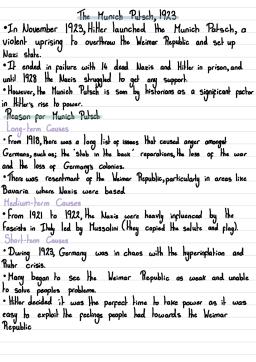 The Munich Putsch, 1923
•In November 1923, Hitler launched the Munich Putsch, a
violent uprising to overthrow the Weimar Republic and set up
Nazi state.
•It ended in failure with 14 dead Nazis and Hitler in prison, and
until 1928 the Nazis struggled to get any support.
•However, the Munich Putsch is seen by historians as a significant factor
in Hitler's rise to power.
Reason for Munich Putsch
Long-term Causes
•From 1918, there was a long list of issues that caused anger amongst
Germans, such as; the 'stab in the back' reparations, the loss of the war
and the loss of Germany's colonies.
•There was resentment of the Weimar Republic, particularly in areas like
Bavaria where Nazis were based.
Medium-term Causes
•From 1921 to 1922, the Nazis were heavily influenced by the
Fascists in Italy led by Mussolini (they copied the salute and flag).
Short-term Causes
•During 1923, Germany was in chaos with the hyperinflation and
Ruhr crisis.
•Many began to see the Weimar Republic as weak and unable
to solve peoples problems.
•Hitler decided it was the perfect time to take power as it was
easy to exploit the feelings people had towards the Weimar
Republic